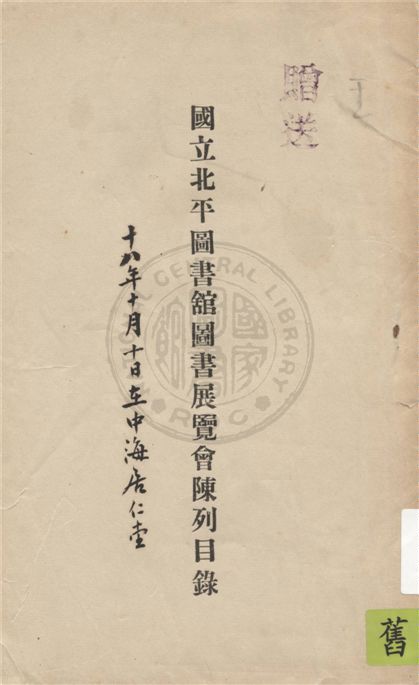 贈送
國立北平圖書舘圖書展覽會陳列目錄
十八年十月十日在中海居仁堂
NATIONAL CENTRAL LIBRARY
R.O.C
國家圖書館
舊